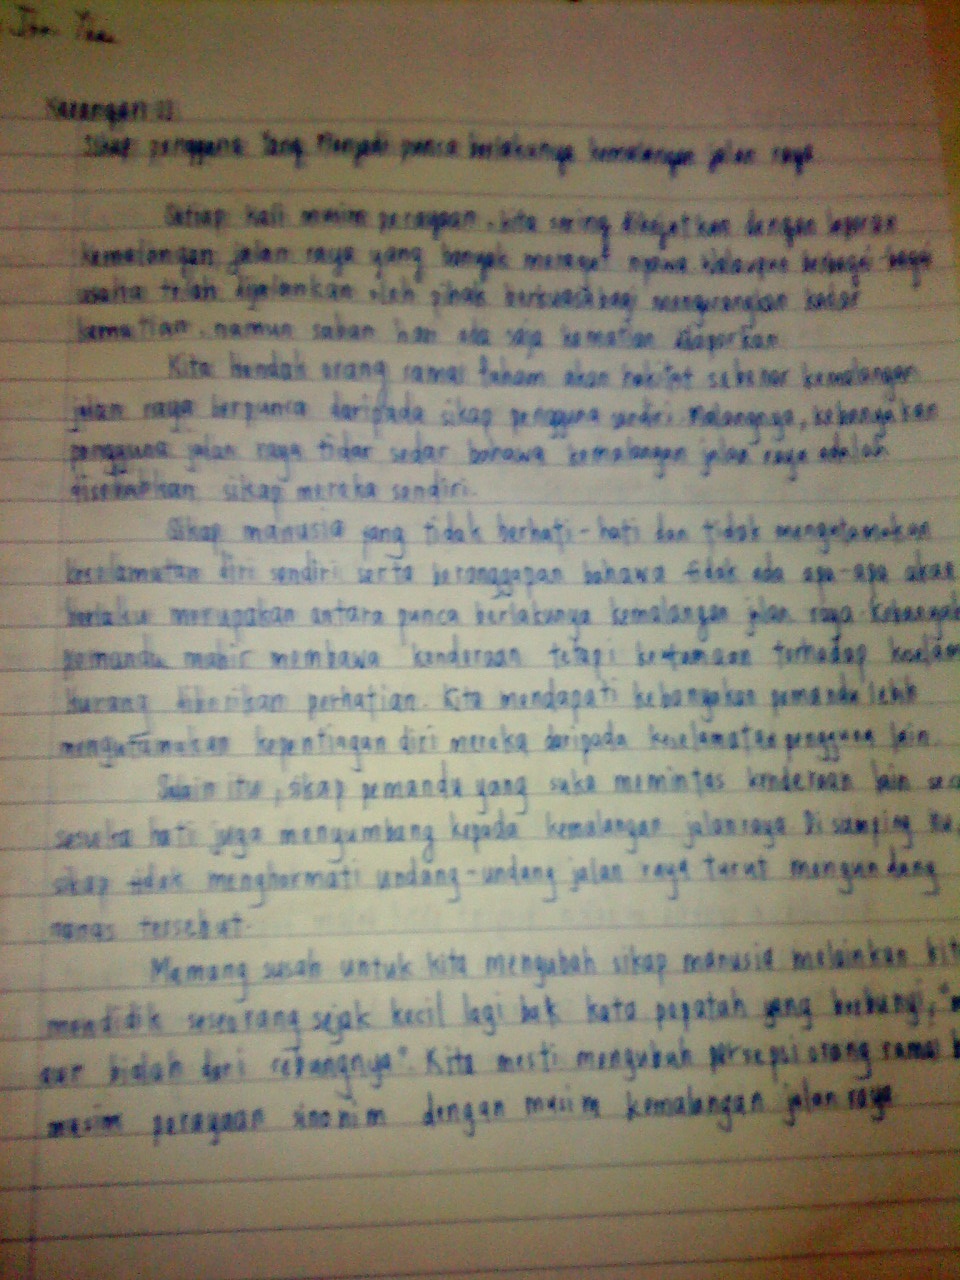 Karangan
Sikap pengguna Yang Menjadi punca berlakunya kemalangan jalan raya
Setiap kali musim perayaan, kita sering dikejutkan dengan laporan
kemalangan jalan raya yang banyak meragut nyawa. Walaupun berbagai-bagai
usaha telah dijalankan oleh pihak berkuasa bagi mengurangkan kadar
kematian, namun saban hari ada saja kematian dilaporkan.
Kita hendak orang ramai faham akan hakikat sebenar kemalangan
jalan raya berpunca daripada sikap pengguna sendiri. Malangnya, kebanyakan
pengguna jalan raya tidak sedar bahawa kemalangan jalan raya adalah
disebabkan sikap mereka sendiri.
Sikap manusia yang tidak berhati-hati dan tidak mengutamakan
keselamatan diri sendiri serta beranggapan bahawa tidak ada apa-apa akan
berlaku merupakan antara punca berlakunya kemalangan jalan raya. Kebanyak
pemandu mahir membawa kenderaan tetapi keutamaan terhadap keselam
kurang diberikan perhatian. Kita mendapati kebanyakan pemandu lebih
mengutamakan kepentingan diri mereka daripada keselamatan pengguna lain.
Selain itu, sikap pemandu yang suka memintas kenderaan lain seca
sesuka hati juga menyumbang kepada kemalangan jalanraya. Di samping itu,
sikap tidak menghormati undang-undang jalan raya turut mengundang
nanas tersebut.
Memang susah untuk kita mengubah sikap manusia melainkan kita
mendidik seseorang sejak kecil lagi bak kata pepatah yang berbunyi, "m
aur bialah dari rebungnya". Kita mesti mengubah persepsi orang ramai b
musim perayaan sinonim dengan musim kemalangan jalan raya